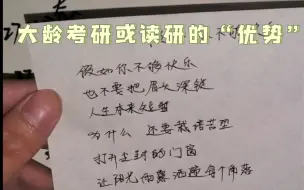 大龄考研或读研的“优势”
假如你不够快乐
也不要把眉头深锁
人生本来短暂
为什么 还要栽培苦涩
打开尘封的门窗
让阳光雨露洒遍每个角落